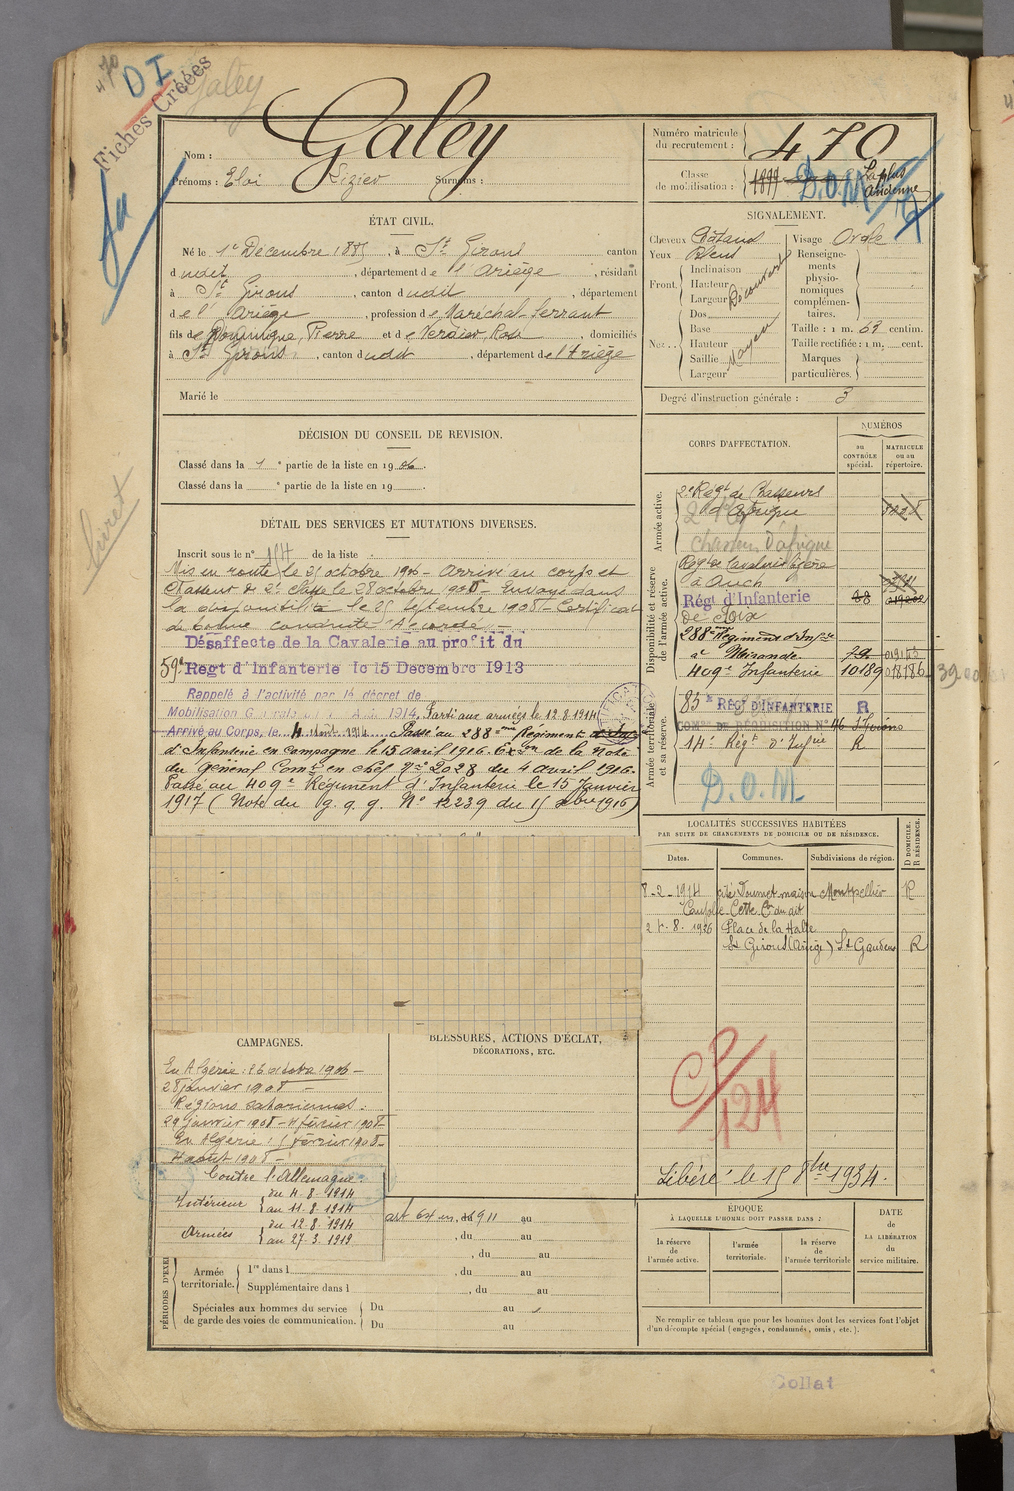 470
DI
Galey
Fiches Créées
Nom : Galey
Prénoms : Eloi Lizier Surnoms :
Numéro matricule du recrutement : 470
Classe de mobilisation : 1899 D.O.M La plus ancienne
ÉTAT CIVIL.
Né le 1er Décembre 1885, à St Girons canton
dudit, département de l'Ariège, résidant
à St Girons, canton dudit, département
de l'Ariège, profession de Maréchal-ferrant
fils de Dominique, Pierre et de Verdier, Rose, domiciliés
à St Girons, canton dudit, département de l'Ariège
Marié le
SIGNALEMENT.
Cheveux Châtains
Yeux bleus
Front. Inclinaison Hauteur Largeur Découvert
Nez. Dos Base Hauteur Saillie Largeur Moyen
Visage Ovale
Renseignements physionomiques complémentaires.
Taille : 1 m. 69 centim.
Taille rectifiée : 1 m. cent.
Marques particulières.
Degré d'instruction générale : 3
DÉCISION DU CONSEIL DE REVISION.
Classé dans la 1e partie de la liste en 1906.
Classé dans la e partie de la liste en 19
livret
DÉTAIL DES SERVICES ET MUTATIONS DIVERSES.
Inscrit sous le n° 114 de la liste
Mis en route le 25 octobre 1906 - Arrivé au corps et
Chasseur de 2e classe le 28 octobre 1906 - Envoyé dans
la disponibilité le 25 septembre 1908 - Certificat
de bonne conduite "Accordé" -
Désaffecte de la Cavalerie au profit du
59e Regt d'Infanterie le 15 Decembre 1913
Rappelé à l'activité par le décret de
Mobilisation Générale 1914. Parti aux armées le 12.8.1914
Arrivé au Corps, le 4 Août 1914 Passé au 288me Régiment
d'Infanterie en campagne le 15 avril 1916. Exon de la note
du Général Comt en chef No 2028 du 4 avril 1916.
Passé au 409e Régiment d'Infanterie le 15 Janvier
1917 (Note du g.q.g. No 12239 du 15 xbre 1916)
CORPS D'AFFECTATION.
NUMÉROS
au CONTRÔLE spécial.
MATRICULE ou au répertoire.
Armée active.
2e Régt de Chasseurs
d'Afrique
chasseurs d'afrique
Disponibilité et réserve de l'armée active.
Régt de Cavalerie légère
à Auch
Rég' d'Infanterie
de Foix
288me Régiment d'Infie
à Mirande
409e Infanterie 10189 018186
39.00
Armée territoriale et sa réserve.
83e REG' D'INFANTERIE R
COMon DE RÉQUISITION No 46
14e Régt d'Infie R
D.O.M.
LOCALITÉS SUCCESSIVES HABITÉES
PAR SUITE DE CHANGEMENTS DE DOMICILE OU DE RÉSIDENCE.
Dates. Communes. Subdivisions de région. D DOMICILE. R RÉSIDENCE.
8-2-1914 cité Doumet maison Montpellier R
Cette Con du dit
27.8.1926 Place de la Halle
St Girons (Ariège) St Gaudens R
CP/124
Libéré le 15 8bre 1934.
CAMPAGNES.
En Algérie : 26 octobre 1906 -
28 janvier 1908 -
Régions sahariennes :
29 janvier 1908 - 4 février 1908 -
En Algérie : 5 février 1908 -
4 août 1908 -
Contre l'Allemagne :
Intérieur du 4.8.1914
au 11.8.1914
Armées du 12.8.1914
au 27.3.1919
BLESSURES, ACTIONS D'ÉCLAT,
DÉCORATIONS, ETC.
1911 au
, du au
, du au
PÉRIODES D'EXE
Armée territoriale. 1re dans l , du au
Supplémentaire dans l , du au
Spéciales aux hommes du service de garde des voies de communication. Du au
Du au
ÉPOQUE
À LAQUELLE L'HOMME DOIT PASSER DANS :
la réserve de l'armée active.
l'armée territoriale.
la réserve de l'armée territoriale
DATE DE LA LIBÉRATION du service militaire.
Ne remplir ce tableau que pour les hommes dont les services font l'objet
d'un décompte spécial (engagés, condamnés, omis, etc.).
Collat